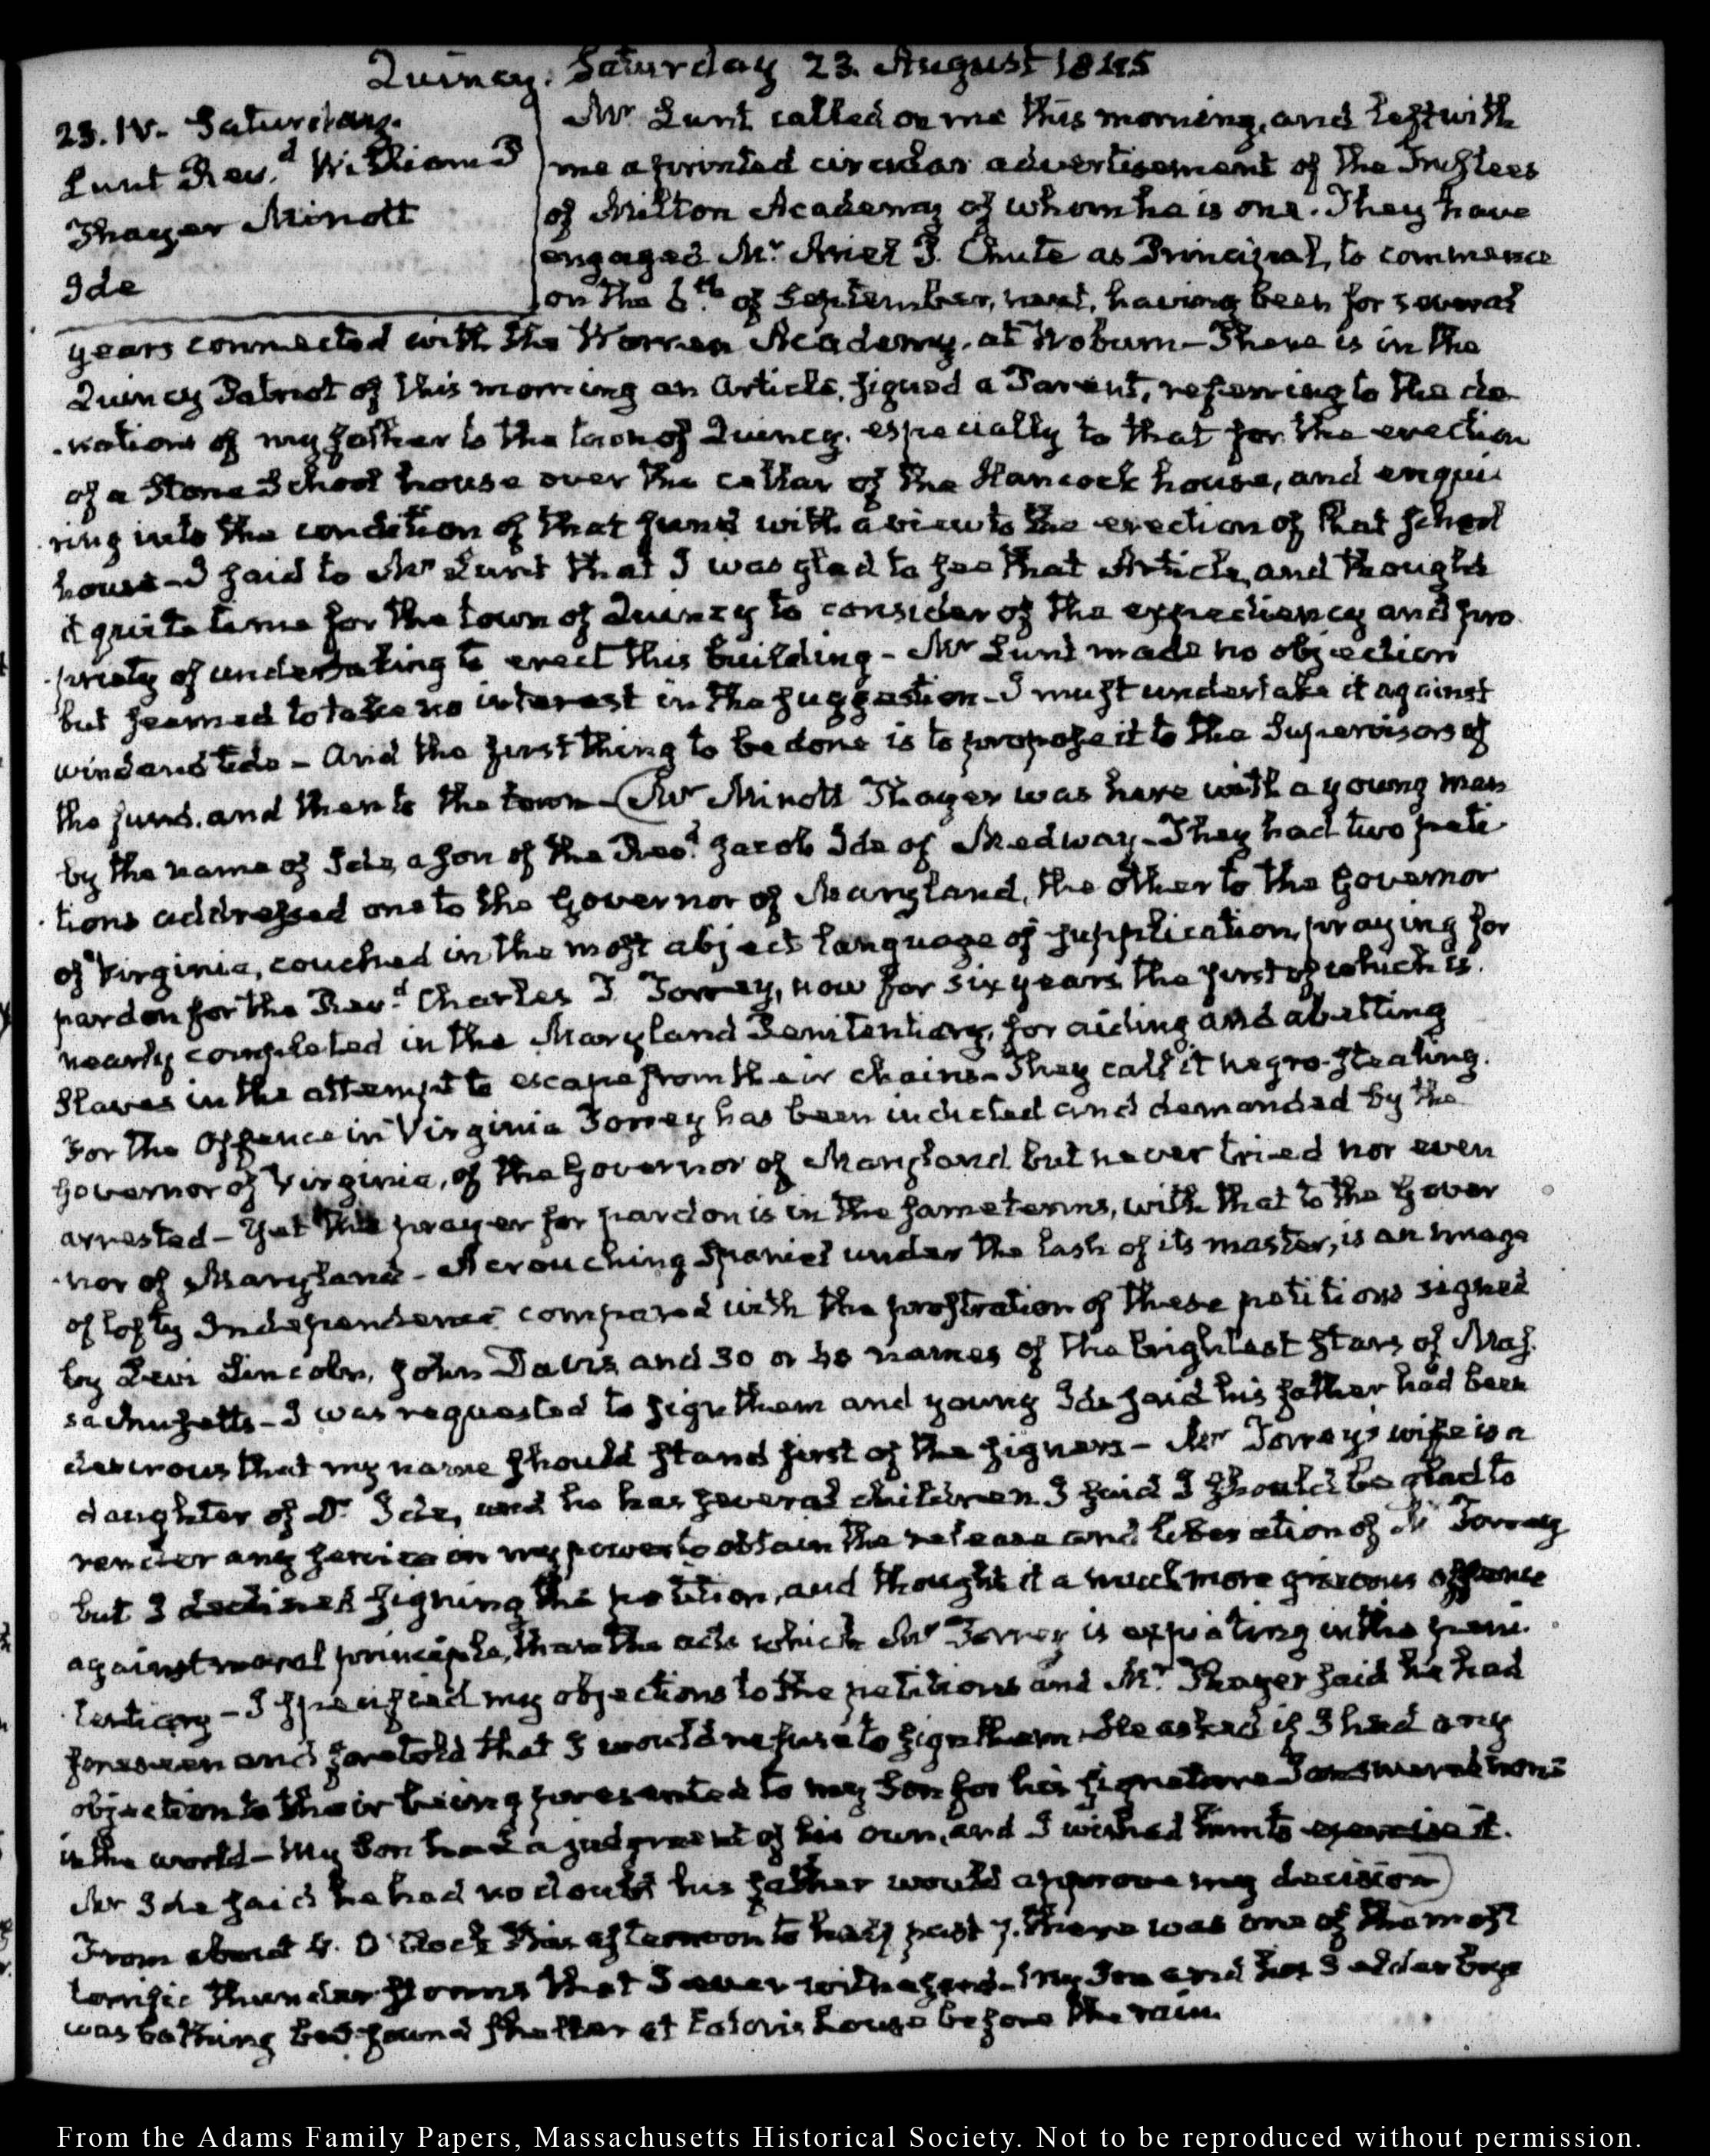 Quincy. Saturday 23. August 1845
23. IV. Saturday.
Lunt Rev.d William P
Thayer Minott
Ide
Mr. Lunt called on me this morning, and left with
me a printed circular advertisement of the Trustees
of Milton Academy of whom he is one. They have
engaged Mr. Ariel P. Chute as Principal, to commence
on the 8th. of September, next, having been for several
years connected with the Warren Academy, at Woburn — There is in the
Quincy Patriot of this morning an Article, signed a Parent, referring to the do-
-nations of my father to the town of Quincy, especially to that for the erection
of a Stone School house over the cellar of the Hancock house, and enqui-
ring into the condition of that fund with a view to the erection of that school
house — I said to Mr Lunt that I was glad to see that Article, and thought
it quite time for the town of Quincy to consider of the expediency and pro-
-priety of undertaking to erect this building — Mr Lunt made no objection
but seemed to take no interest in the suggestion — I must undertake it against
wind and tide — And the first thing to be done is to propose it to the Supervisors of
the fund, and then to the town — (Mr Minott Thayer was here with a young man
by the name of Ide, a son of the Revd. Jacob Ide of Medway — They had two peti-
-tions addressed one to the Governor of Maryland, the other to the Governor
of Virginia, couched in the most abject language of supplication, praying for
pardon for the Rev.d Charles T. Torrey, now for six years the first of which is
nearly completed in the Maryland Penitentiary, for aiding and abetting
Slaves in the attempt to escape from their chains — They call it negro-stealing.
For the Offence in Virginia Torrey has been indicted and demanded by the
Governor of Virginia, of the Governor of Maryland but never tried nor even
arrested — Yet the prayer for pardon is in the same terms, with that to the Gover
-nor of Maryland — A crouching Spaniel under the lash of its master, is an image
of lofty Independence compared with the prostration of these petitions signed
by Levi Lincoln, John Davis and 30 or 40 names of the brightest stars of Mas-
sachusetts — I was requested to sign them and young Ide said his father had been
desirous that my name should stand first of the signers — Mr Torrey's wife is a
daughter of Dr. Ide, and he has several children. I said I should be glad to
render any service in my power to obtain the release and liberation of Mr Torrey
but I declined signing the petition, and thought it a much more grievous offence
against moral principle, than the acts which Mr Torrey is expiating in the peni-
-tentiary — I specified my objections to the petitions and Mr. Thayer said he had
foreseen and foretold that I would refuse to sign them. He asked if I had any
objection to their being presented to my Son for his signature I answered none
in the world — My Son had a judgment of his own, and I wished him to exercise it.
Mr Ide said he had no doubt his father would approve my decision)
From about 4. O'Clock this afternoon to half past 7. there was one of the most
terrific thunder storms that I ever witnessed — My Son and his 3 elder boys
was bathing but found shelter at house before the rain.
From the Adams Family Papers, Massachusetts Historical Society. Not to be reproduced without permission.